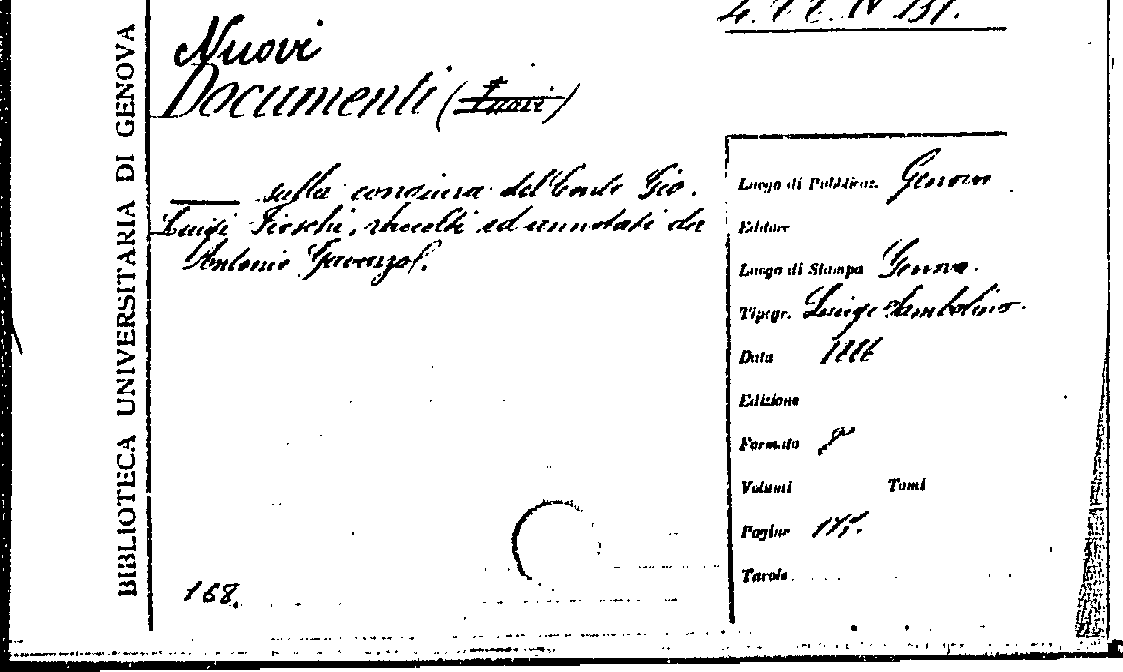 BIBLIOTECA UNIVERSITARIA DI GENOVA
Nuovi
Documenti (Nuovi)
sulla congiura del Conte Gio.
Luigi Fieschi, raccolti ed annotati da
Antonio
Luogo di Pubblicaz. Genova
Editore
Luogo di Stampa Genova.
Tipogr. Luigi Sambolino.
Data
Edizione
Formato 8°
Volumi Tomi
Pagine
Tavole
168.